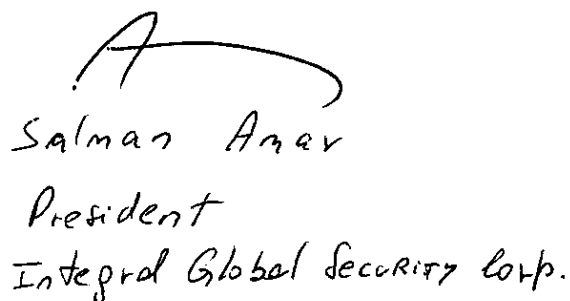 Salman Amar
President
Integral Global Security Corp.